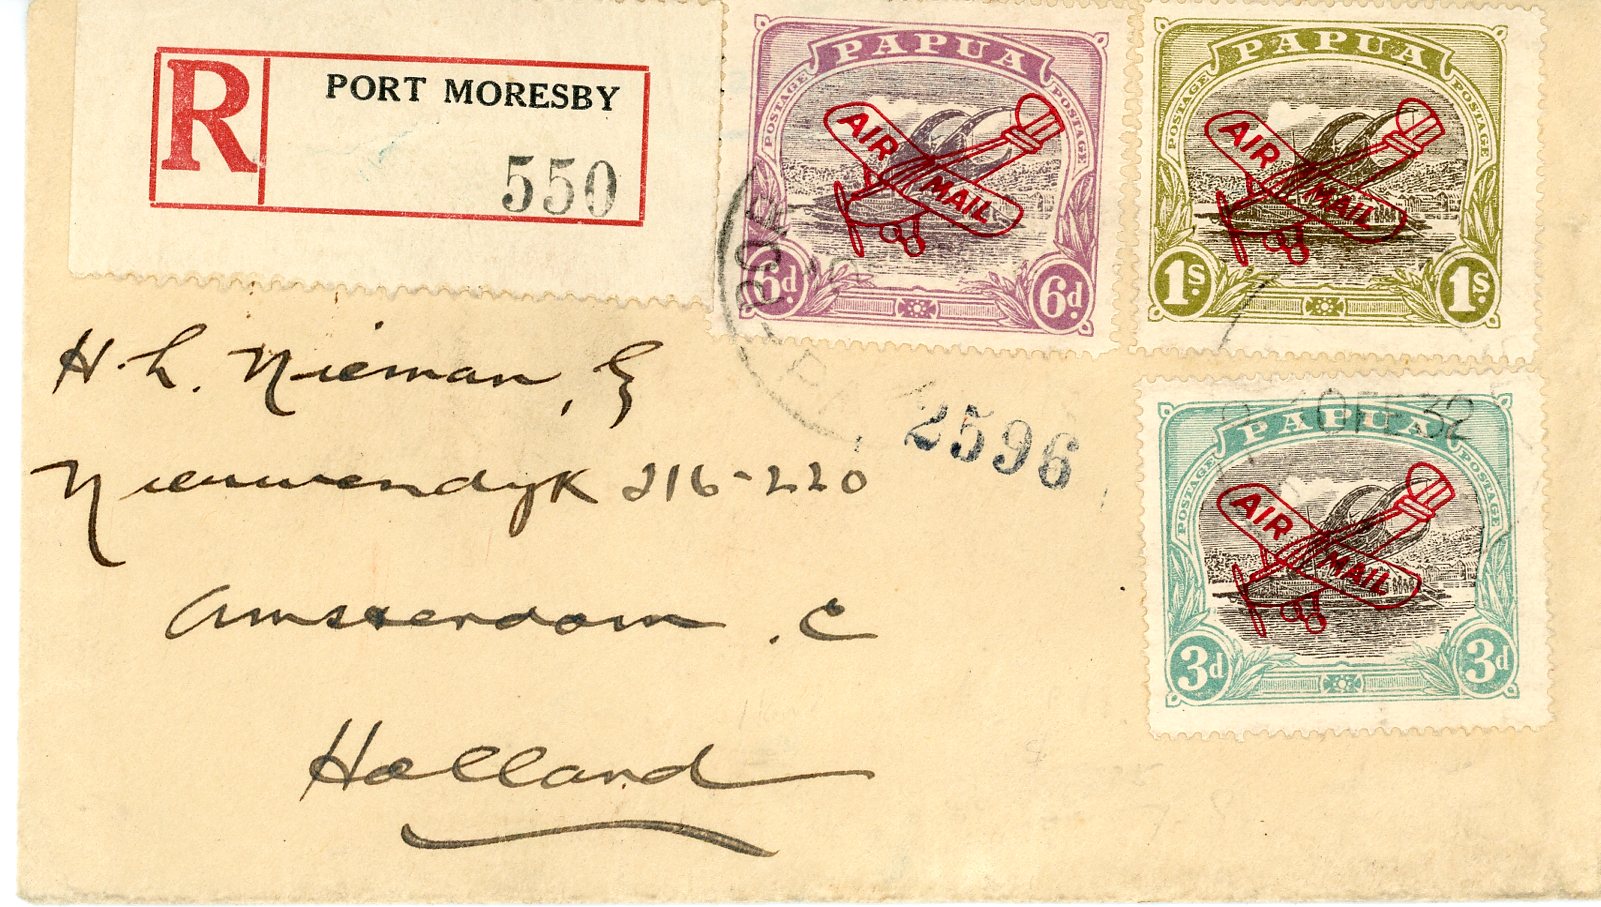 R
PORT MORESBY
550
PAPUA
POSTAGE POSTAGE
AIR MAIL
6d. 6d.
PAPUA
POSTAGE POSTAGE
AIR MAIL
1s. 1s.
H. L. Nieman, E
Nieuwendyk 216-220
Amsterdam. C
Holland
2596
FE 32
PAPUA
POSTAGE POSTAGE
AIR MAIL
3d 3d